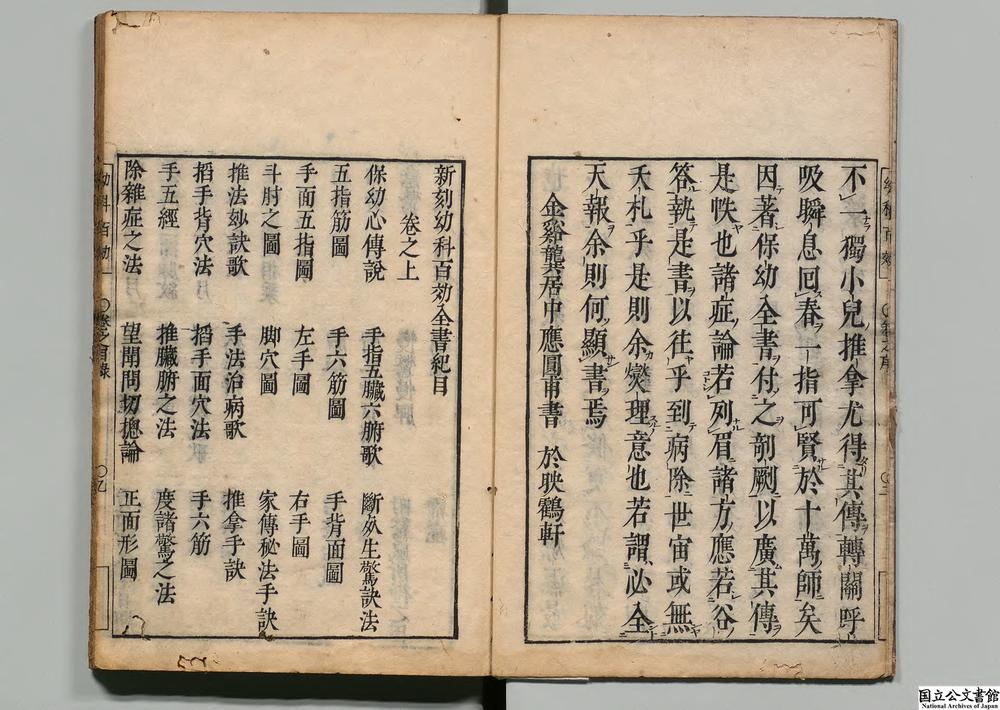 不一獨小兒推拿尤得其傳轉關呼
吸瞬息回春一指可賢於十萬師矣
因著保幼全書付之剞劂以廣其傳
是帙也諸症論若列眉諸方應若谷
答執是書以往乎到病除世宙或無
夭札乎是則余爕理意也若謂必全
天報余則何顯書焉
金谿龔居中應圓甫書 於映鶴軒
新刻幼科百効全書紀目
卷之上
保幼心傳說 手指五臟六腑歌 斷死生驚訣法
五指筋圖 手六筋圖 手背面圖
手面五指圖 左手圖 右手圖
斗肘之圖 脚穴圖 家傳秘法手訣
推法妙訣歌 手法治病歌 推拿手訣
搯手背穴法 搯手面穴法歌 手六筋
手五經 推臟腑之法 度諸驚之法
除雜症之法 望聞問切總論 正面形圖
幼科百効 目錄
国立公文書館
National Archives of Japan